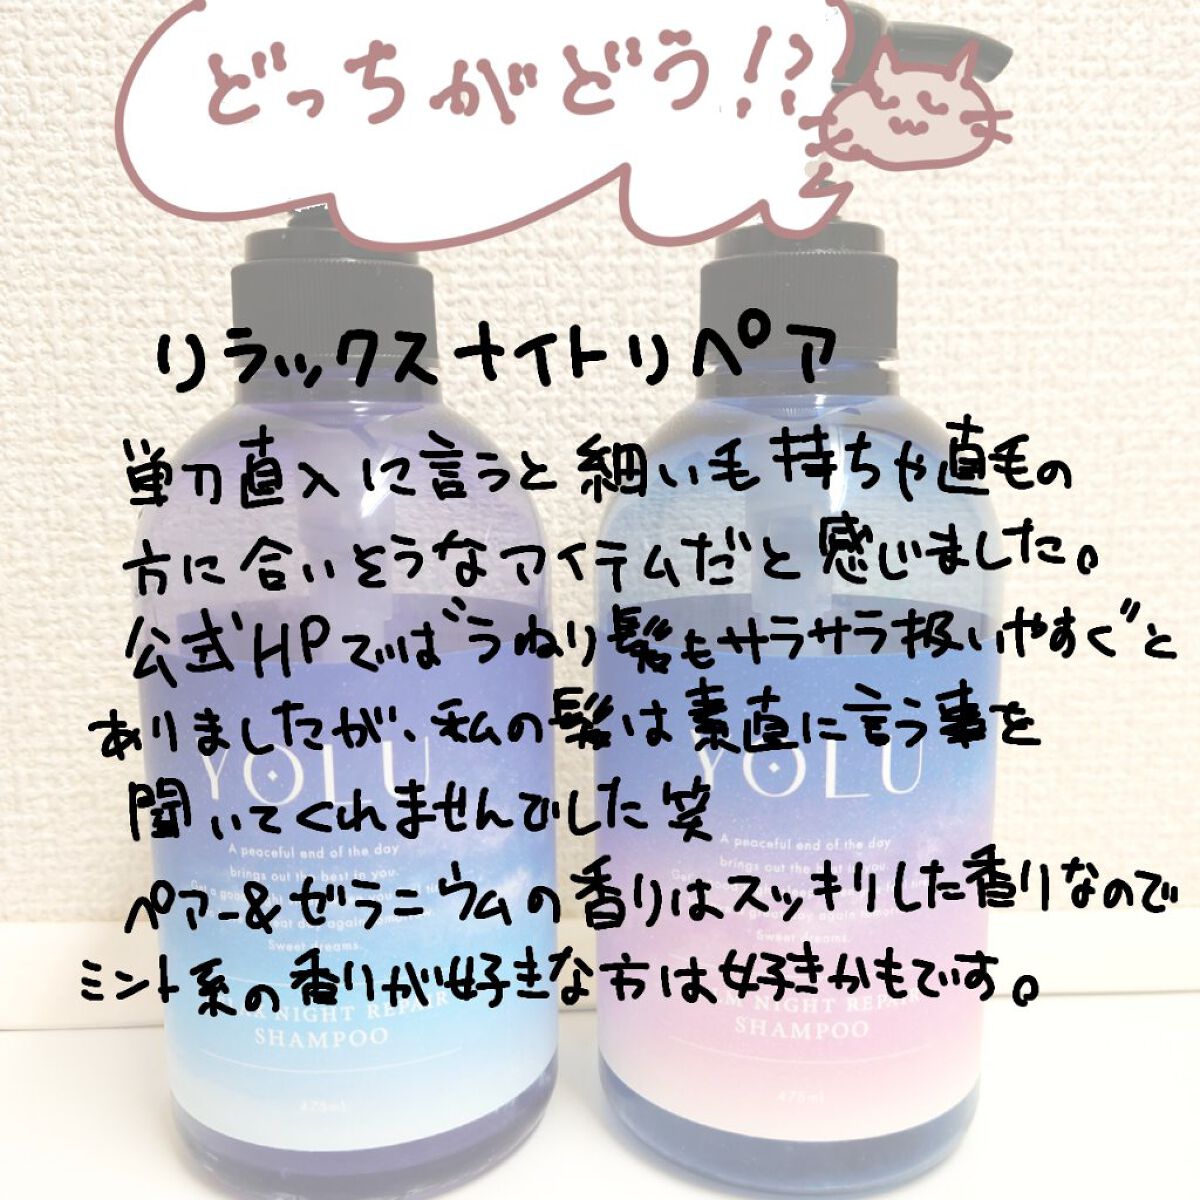 どっちがどう!?
リラックスナイトリペア
単刀直入に言うと細い毛持ちや直毛の
方に合いそうなアイテムだと感じました。
公式HPでは"うねり髪もサラサラ扱いやすぐ"と
ありましたが、私の髪は素直に言う事を
聞いてくれませんでした笑
ペアー&ゼラニウムの香りはスッキリした香りなので
ミント系の香りが好きな方は好きかもです。
YOLU
A peaceful end of the day
brings out the best in you.
Sweet dreams.
NIGHT REPAIR
SHAMPOO
475ml
YOLU
A peaceful end of the day
brings out the best in you.
Sweet dreams.
NIGHT REPAIR
SHAMPOO
475ml